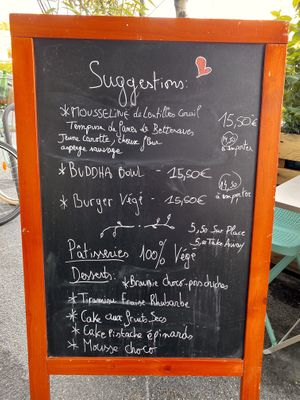 Suggestions:
* MOUSSELINE de Lentilles Corail
Tempura de Fanes de Betteraves
Jeune carotte, choux fleur
asperge sauvage
15,50€
14,50
à emporter
* BUDDHA BOWL - 15,50€
* Burger Végé - 15,50€
14,50
à emporter
Pâtisseries 100% Végé
5,50 Sur Place
Take Away
Desserts:
* Brownie choco-pistaches
* Tiramisu Fraise Rhubarbe
* Cake aux fruits Secs
* Cake pistache épinards
* Mousse choco